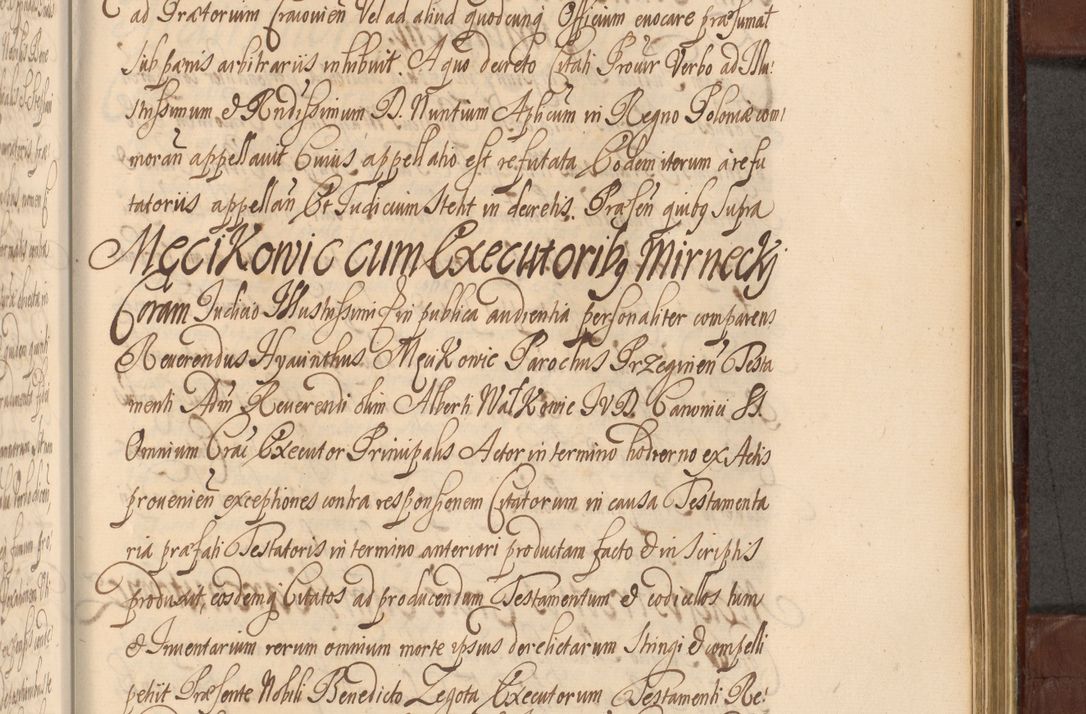 ad Prætorium Cracovien̄ Vel ad aliud quodcunq Officium evocare præsumat
sub pænis arbitrariis inhibuit. A quo decreto Citati Provir Verbo ad Illu:
strissimum & Rndissimum D. Nuntium Aplicum in Regno Poloniæ com:
moran̄ appellavit Cuius appellatio est refutata Eodem iterum a refu
tatoriis appellan̄ Et Iudicium stetit in decretis. Præsen quibq supra
Męcikowic cum Executoribq Mirneckÿ
Coram Iudicio Illustrissimi & in publica audientia personaliter comparens
Reverendus Hyacinthus Męcikowic Parochus Przeginien̄ Testa
menti Adm̄ Reverendi olim Alberti Wałkowic IVD. Canonici SS.
Omnium Crac̄ Executor Principalis Actor in termino hodierno ex Actis
provenien̄ exceptiones contra responsionem Citatorum in causa Testamenta
ria præfati Testatoris in termino anteriori productam facto & in scriptis
produxit, eosdemq Citatos ad producendum Testamentum & codicillos tum
& Inventarium rerum omnium morte ipsius derelictarum stringi & compelli
petiit Præsente Nobili Benedicto Zegota Executorum Testamenti Re: